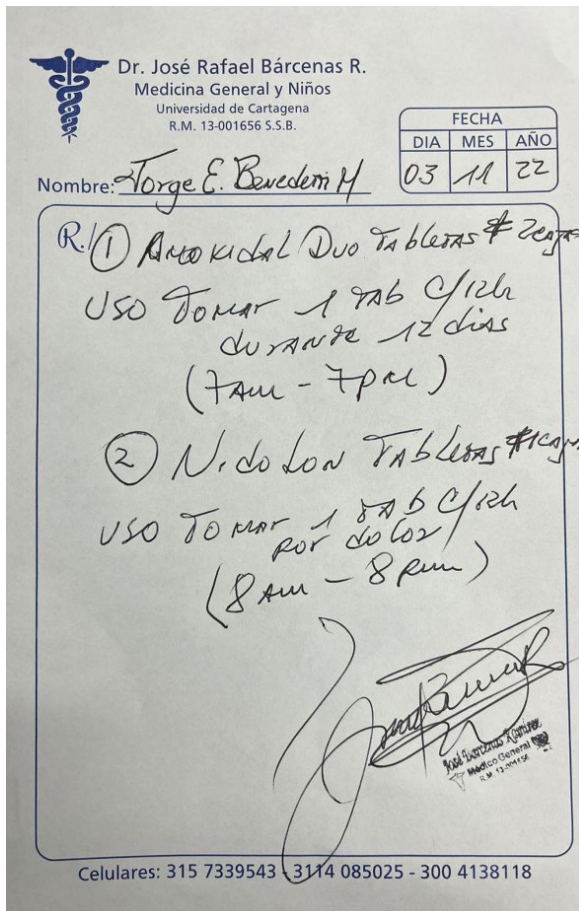 Dr. José Rafael Bárcenas R.
Medicina General y Niños
Universidad de Cartagena
R.M. 13-001656 S.S.B.
FECHA
DIA MES AÑO
03 11 22
Nombre: Jorge E. Benedetti M
R./
① Amoxidal Duo Tabletas # 2 cajas
USO Tomar 1 TAB C/12h
durante 12 dias
(7AM - 7pm)
② Nidolon Tabletas # 1 caja
USO Tomar 1 TAB C/12h
por dolor
(8AM - 8pm)
José Barcenas Ramirez
Médico General
R.M. 13-001656
Celulares: 315 7339543 - 3114 085025 - 300 4138118